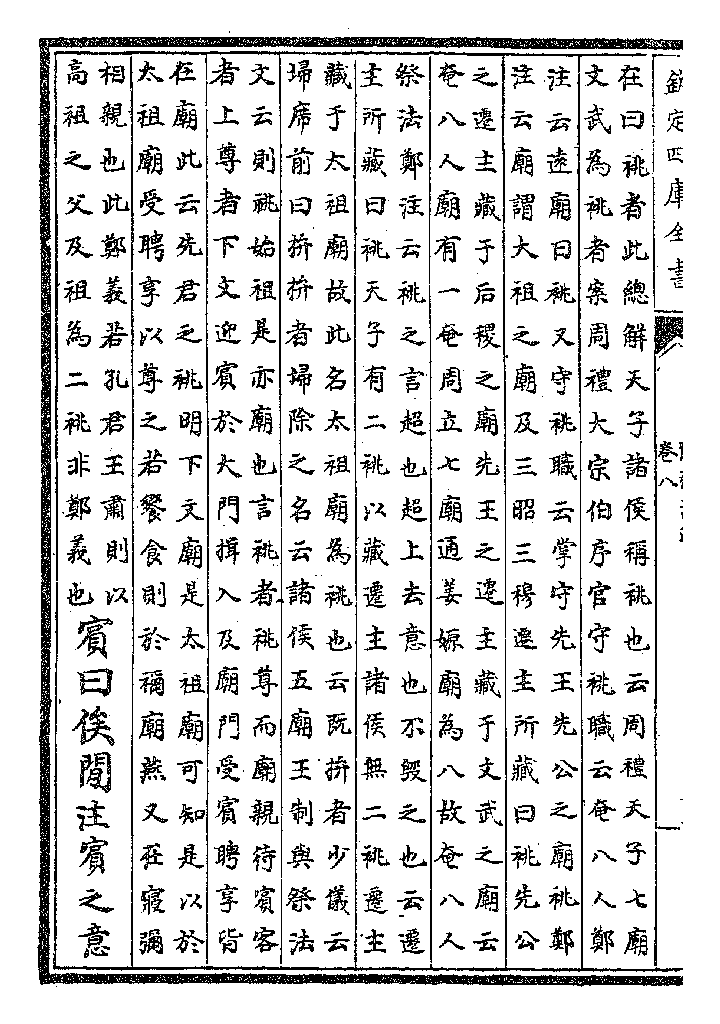 欽定四庫全書
卷八
在曰祧者此總解天子諸侯稱祧也云周禮天子七廟
文武為祧者案周禮大宗伯序官守祧職云奄八人鄭
注云遠廟曰祧又守祧職云掌守先王先公之廟祧鄭
注云廟謂大祖之廟及三昭三穆遷主所藏曰祧先公
之遷主藏于后稷之廟先王之遷主藏于文武之廟云
奄八人廟有一奄周立七廟通姜嫄廟為八故奄八人
祭法鄭注云祧之言超也超上去意也不毁之也云遷
主所藏曰祧天子有二祧以藏遷主諸侯無二祧遷主
藏于太祖廟故此名太祖廟為祧也云既拚者少儀云
埽席前曰拚拚者埽除之名云諸侯五廟王制與祭法
文云則祧始祖是亦廟也言祧者祧尊而廟親待賓客
者上尊者下文迎賓於大門揖入及廟門受賓聘享皆
在廟此云先君之祧明下文廟是太祖廟可知是以於
太祖廟受聘享以尊之若饗食則於禰廟燕又在寢彌
相親也此鄭義若孔君王肅則以
高祖之父及祖為二祧非鄭義也
賓曰俟閒注賓之意